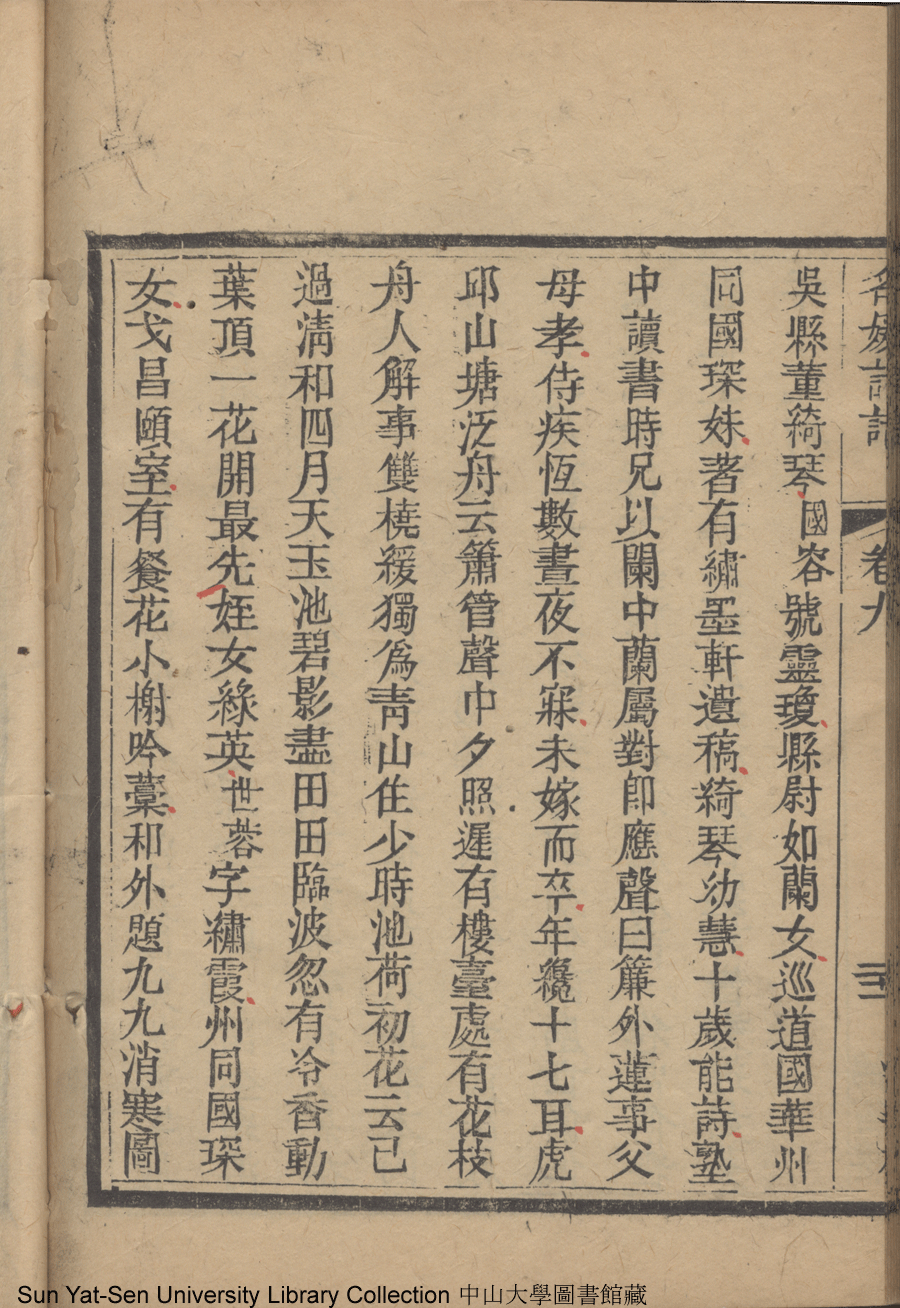 名媛詩話
卷九
吳縣董綺琴國容號靈瓊縣尉如蘭女巡道國華州
同國琛妹著有繡墨軒遺稿綺琴幼慧十歲能詩塾
中讀書時兄以闌中蘭屬對卽應聲曰簾外蓮事父
母孝侍疾恆數晝夜不寐未嫁而卒年纔十七耳虎
邱山塘泛舟云簫管聲中夕照遲有樓臺處有花枝
舟人解事雙橈緩獨爲靑山住少時池荷初花云已
過淸和四月天玉池碧影盡田田臨波忽有冷香動
葉頂一花開最先姪女綠英世蓉字繡霞州同國琛
女戈昌頤室有餐花小榭吟藳和外題九九消寒圖
Sun Yat-Sen University Library Collection 中山大學圖書館藏